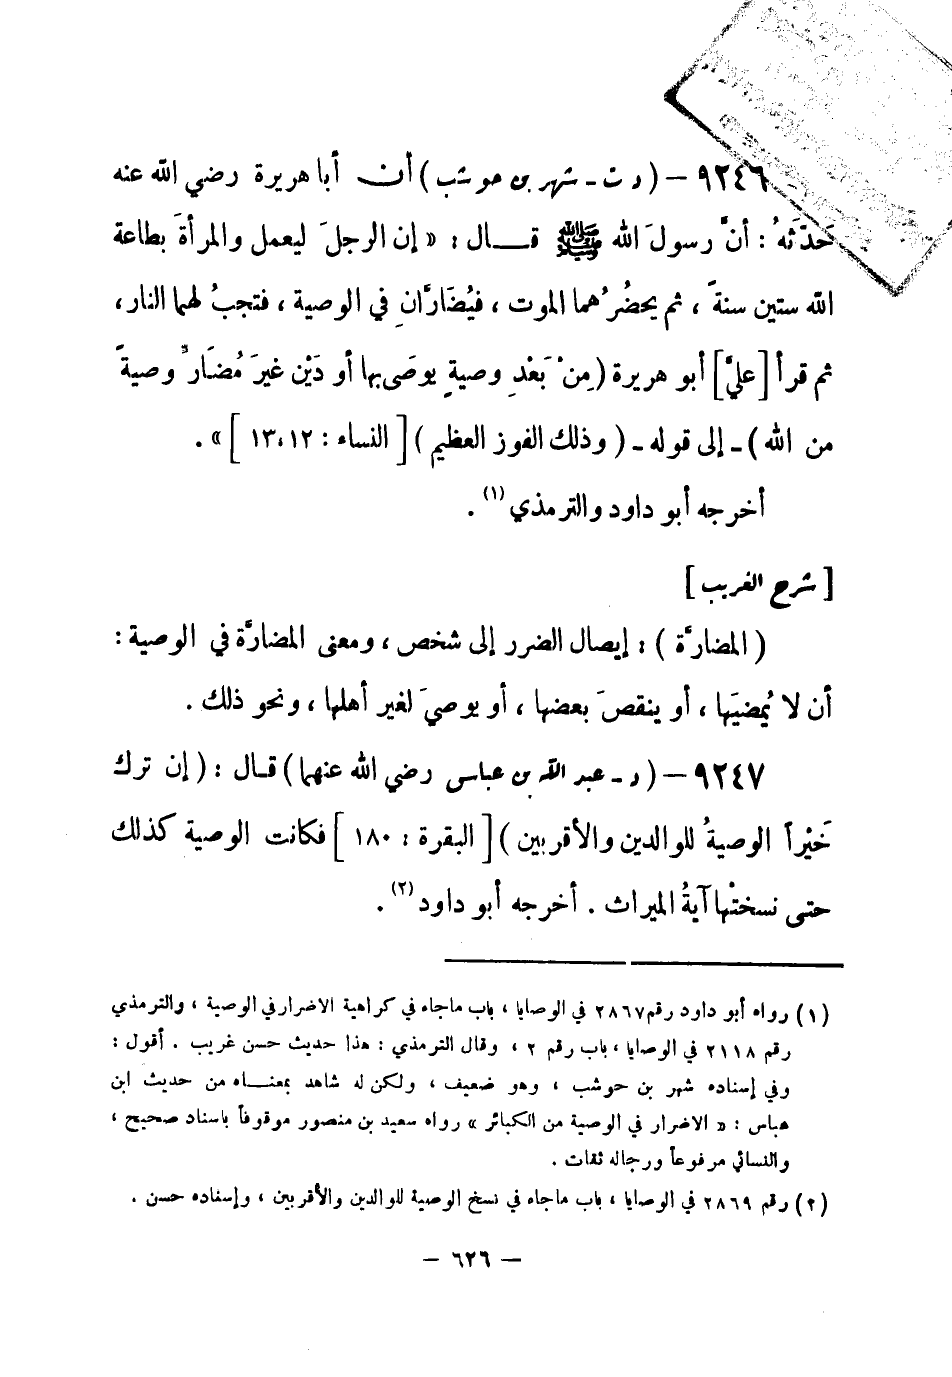 ٩٢٤٦ – ( د ت - شهر بن حوشب ) أن أبا هريرة رضي الله عنه
حَدَّثَهُ : أنَّ رسولَ الله ﷺ قـــال : « إن الرجلَ ليعمل والمرأةَ بطاعة
الله ستين سنةً ، ثم يحضُرُهما الموت ، فيُضَارَّانِ في الوصية ، فتجبُ لهما النار ،
ثم قرأ [ عليَّ ] أبو هريرة ( مِنْ بَعْدِ وصيةٍ يوصَى بها أو دَيْن غيرَ مُضَارٍّ وصيةً
من الله ) - إلى قوله - ( وذلك الفوز العظيم ) [ النساء : ١٢ ، ١٣ ] » .
أخرجه أبو داود والترمذي (١) .
[ شرح الغريب ]
( المضارَّة ) : إيصال الضرر إلى شخص ، ومعنى المضارَّة في الوصية :
أن لا يُمضيَها ، أو ينقصَ بعضها ، أو يوصيَ لغير أهلها ، ونحو ذلك .
٩٢٤٧ – ( د - عبد الله بن عباس رضي الله عنهما ) قـال : ( إن ترك
خَيْراً الوصيةُ للوالدين والأقربين ) [ البقرة : ١٨٠ ] فكانت الوصية كذلك
حتى نسختْها آيةُ الميراث . أخرجه أبو داود (٢) .
(١) رواه أبو داود رقم ٢٨٦٧ في الوصايا ، باب ماجاء في كراهية الاضرار في الوصية ، والترمذي
رقم ٢١١٨ في الوصايا ، باب رقم ٢ ، وقال الترمذي : هذا حديث حسن غريب . أقول :
وفي إسناده شهر بن حوشب ، وهو ضعيف ، ولكن له شاهد بمعنـــاه من حديث ابن
عباس : « الاضرار في الوصية من الكبائر » رواه سعيد بن منصور موقوفاً باسناد صحيح ،
والنسائي مرفوعاً ورجاله ثقات .
(٢) رقم ٢٨٦٩ في الوصايا ، باب ماجاء في نسخ الوصية للوالدين والأقربين ، وإسناده حسن .
– ٦٢٦ –